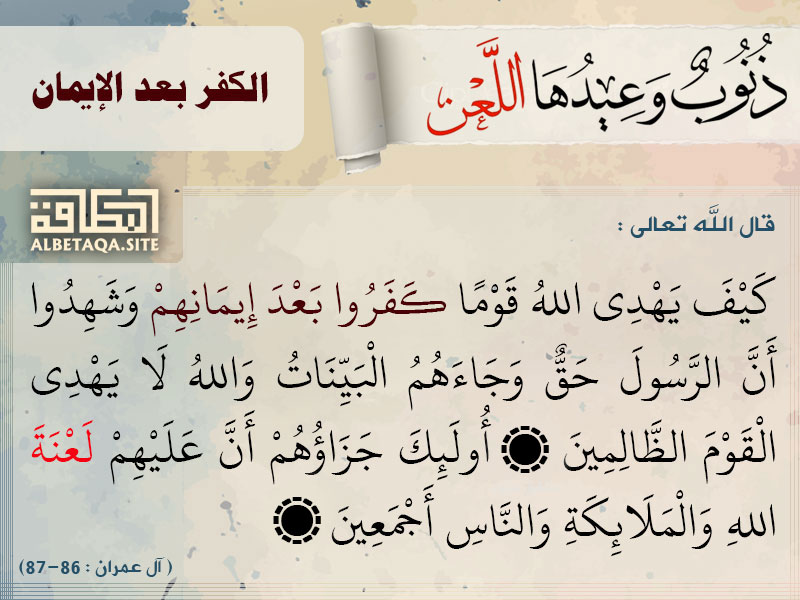 ذُنُوبٌ وَعِيدُهَا اللَّعْن
الكفر بعد الإيمان
البطاقة
ALBETAQA.SITE
قال اللَّه تعالى :
كَيْفَ يَهْدِى اللهُ قَوْمًا كَفَرُوا بَعْدَ إِيمَانِهِمْ وَشَهِدُوا
أَنَّ الرَّسُولَ حَقٌّ وَجَاءَهُمُ الْبَيِّنَاتُ وَاللهُ لَا يَهْدِى
الْقَوْمَ الظَّالِمِينَ أُولَئِكَ جَزَاؤُهُمْ أَنَّ عَلَيْهِمْ لَعْنَةَ
اللهِ وَالْمَلَائِكَةِ وَالنَّاسِ أَجْمَعِينَ
( آل عمران : 86-87)